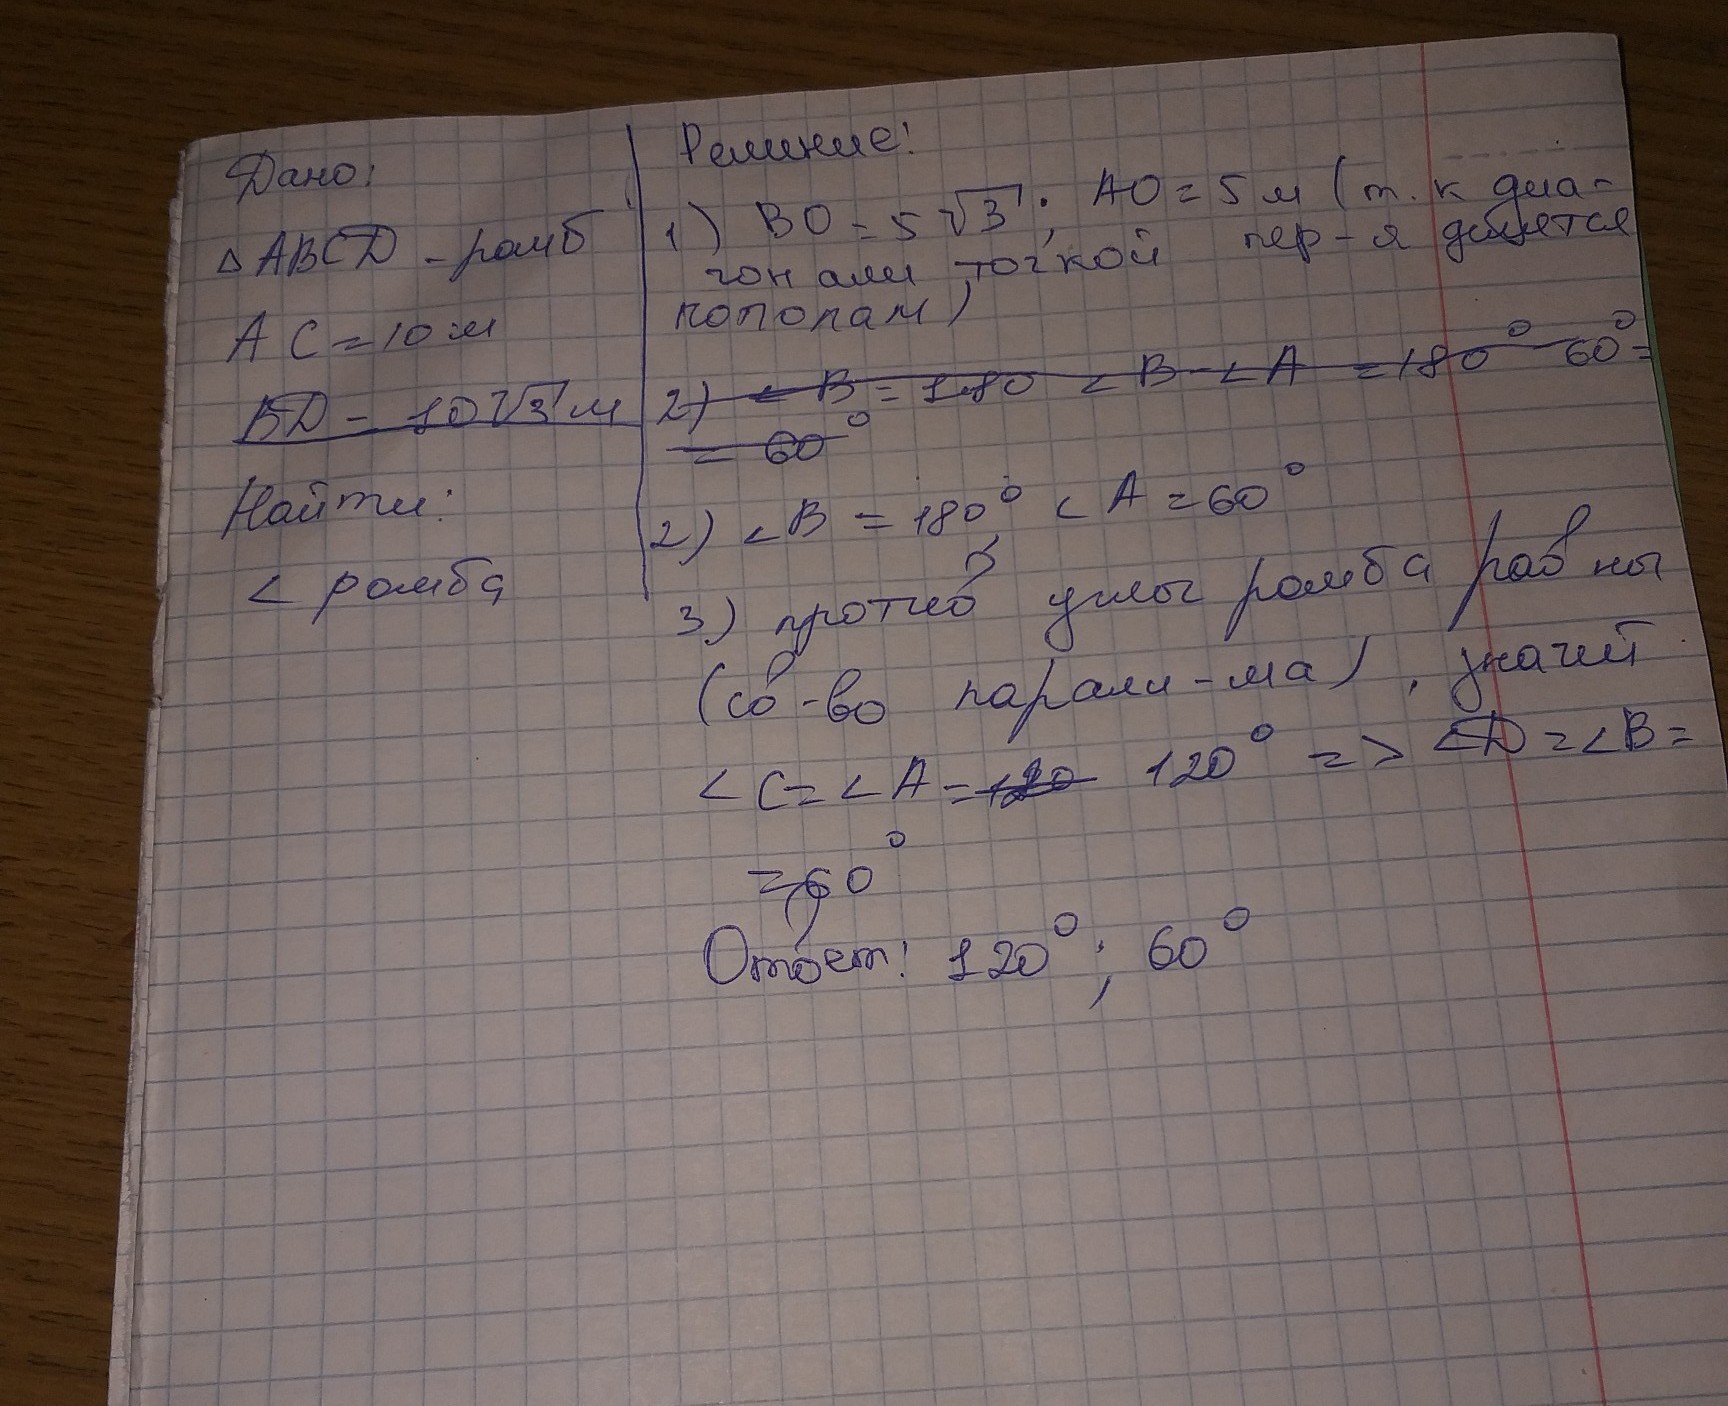 Дано:
△ABCD - ромб
AC = 10 м
BD = 10√3 м
Найти:
< ромба
Решение:
1) BO = 5√3; AO = 5 м (т. к диа-
гонали точкой пер-я делятся
пополам)
2) < B = 180 < B - < A = 180° 60° =
= 60°
2) < B = 180° < A = 60°
3) против углы ромба равны
(св-во паралл-ма), значит
< C = < A = 120 120° => < D = < B =
= 60°
Ответ: 120°; 60°